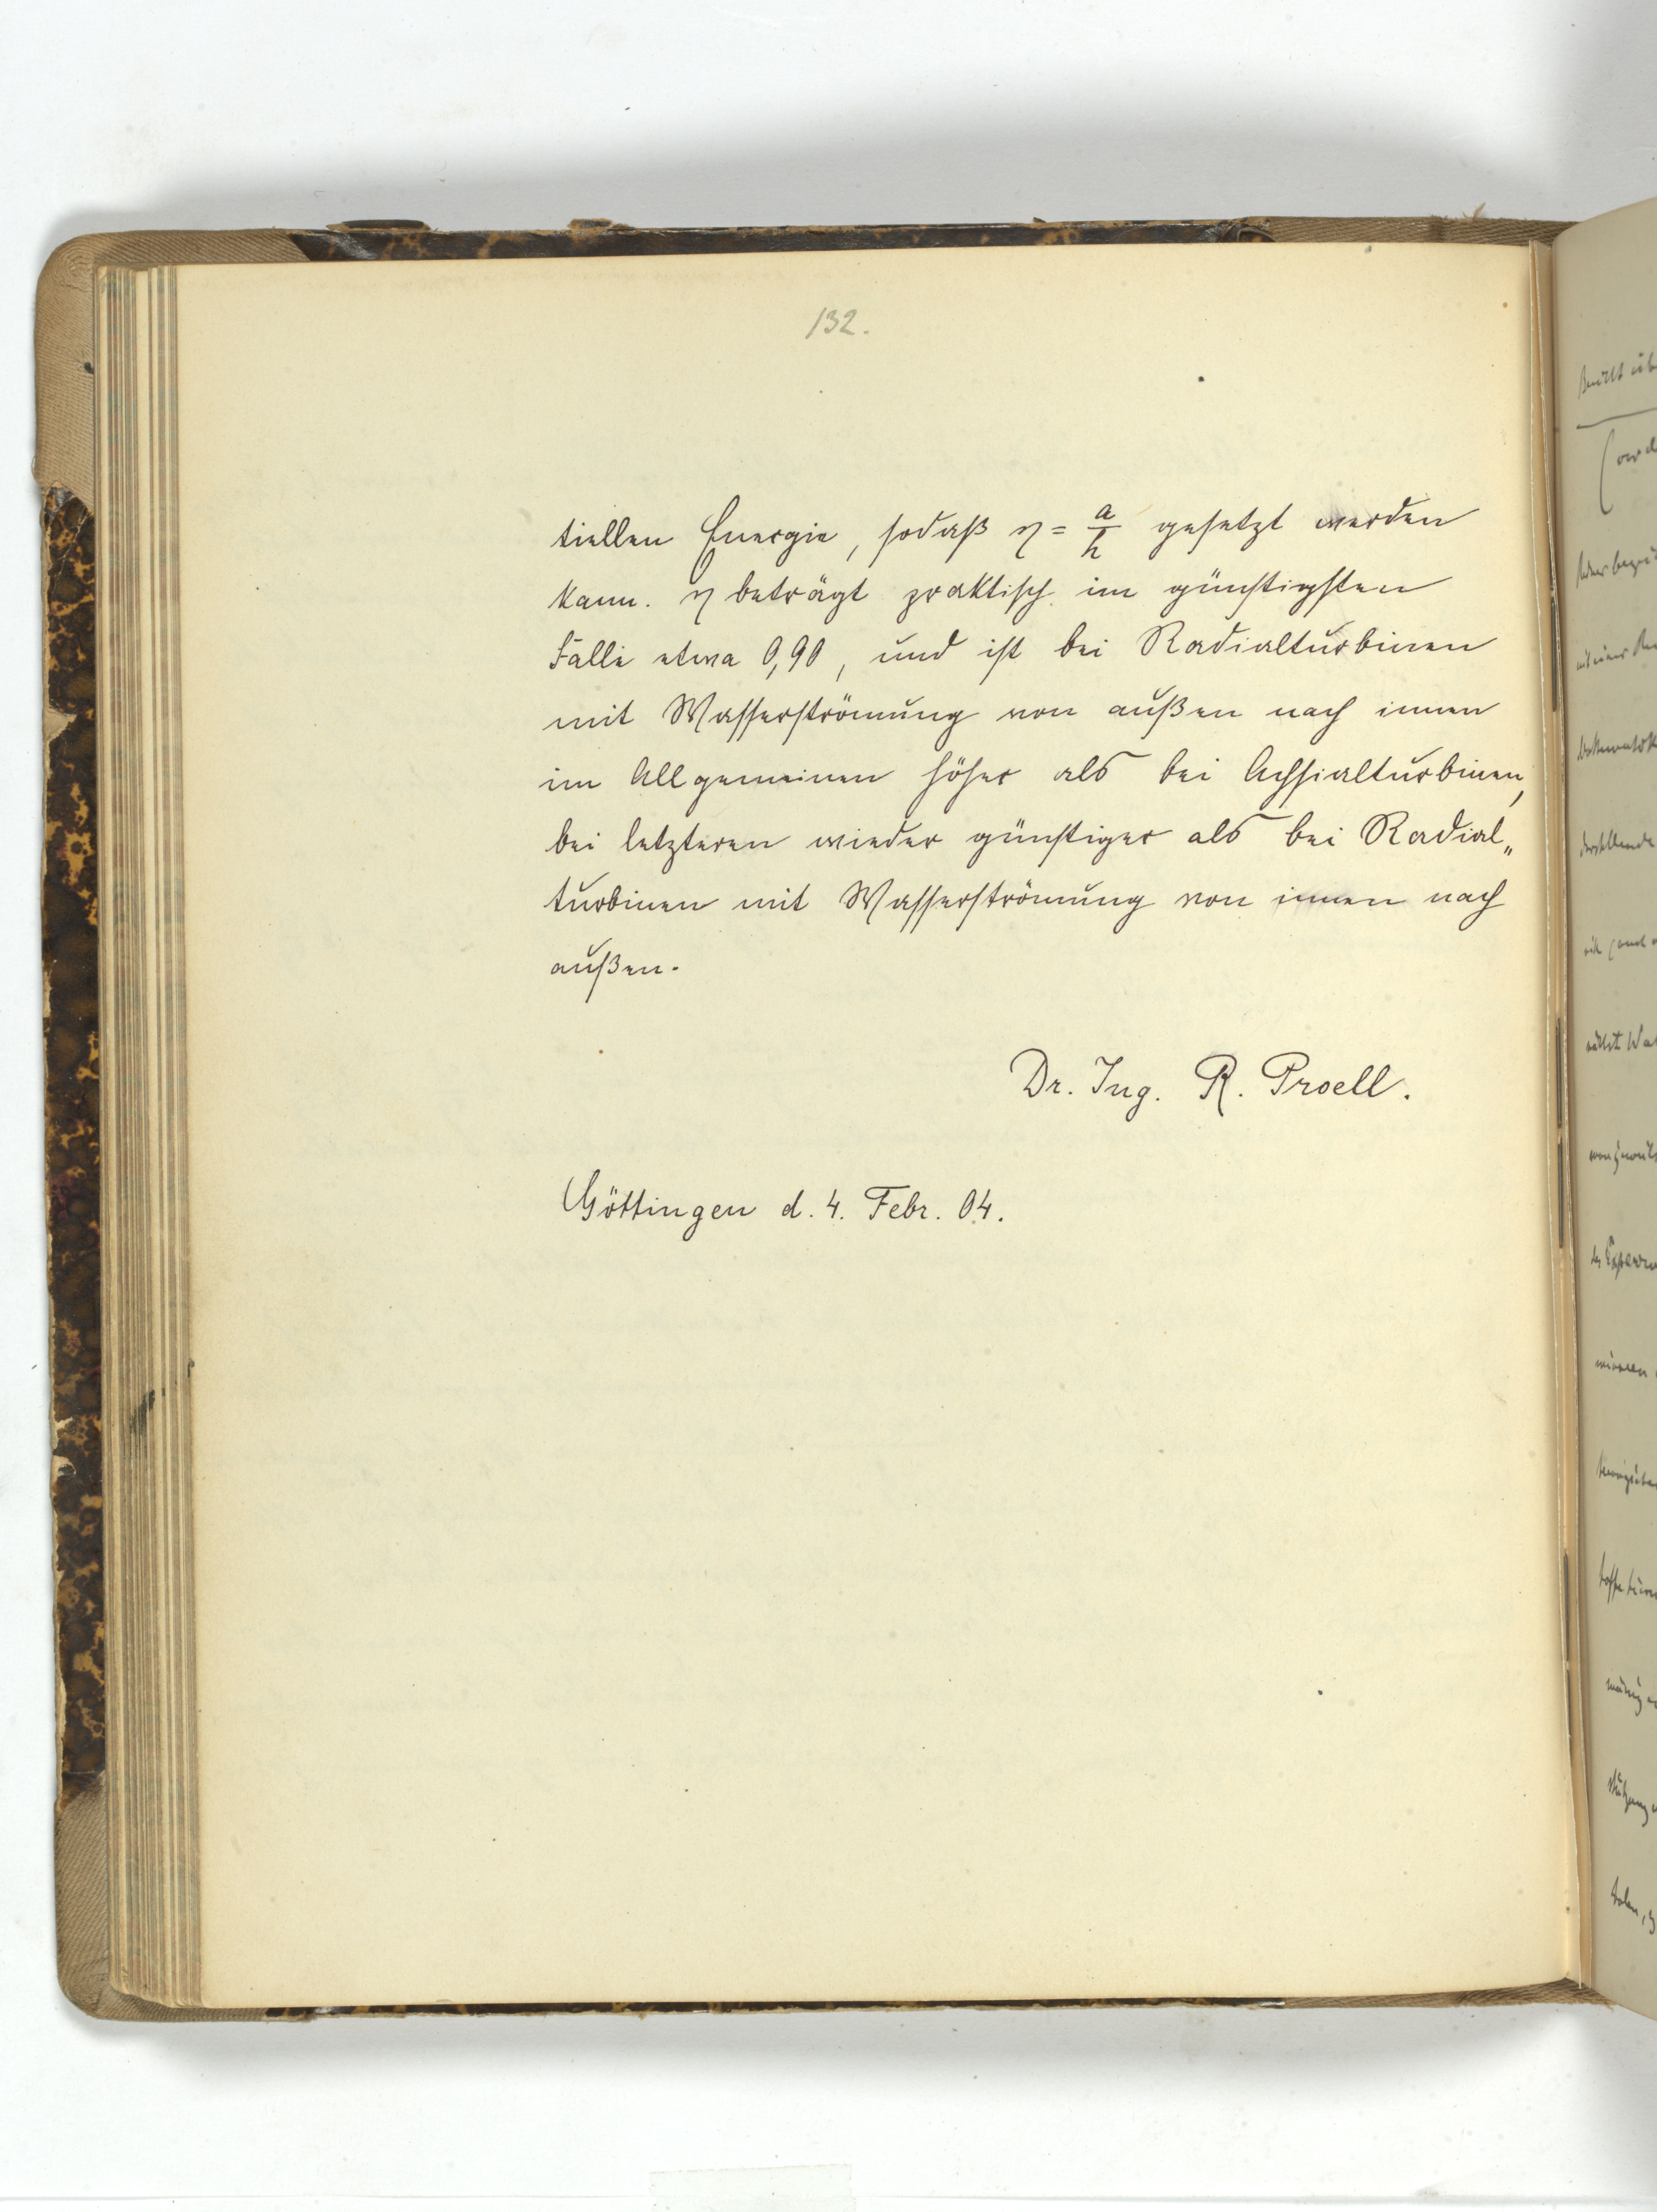 132.
tiellen Energie, sodaß η = a/h gesetzt werden
kann. η beträgt praktisch im günstigsten
Falle etwa 0,90, und ist bei Radialturbinen
mit Wasserströmung von außen nach innen
im Allgemeinen höher als bei Achsialturbinen,
bei letzteren wieder günstiger als bei Radial„
turbinen mit Wasserströmung von innen nach
außen.
Dr. Ing. R. Proell.
Göttingen d. 4. Febr. 04.